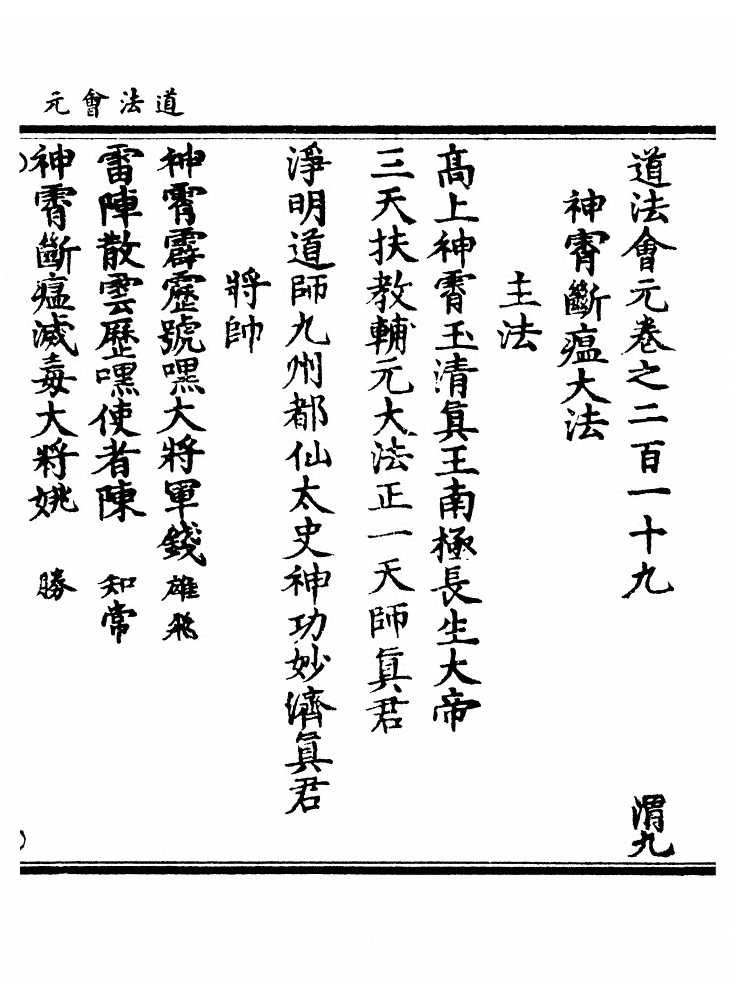 道法會元
道法會元卷之二百一十九 渭九
神霄斷瘟大法
主法
高上神霄玉清眞王南極長生大帝
三天扶教輔元大法正一天師眞君
淨明道師九州都仙太史神功妙濟眞君
將帥
神霄霹靂號嘿大將軍錢雄飛
雷陣散雲歷嘿使者陳知常
神霄斷瘟滅毒大將姚勝